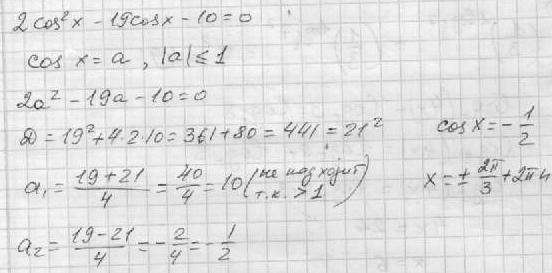 2cos²x - 19cosx - 10 = 0
cos x = a, |a| ≤ 1
2a² - 19a - 10 = 0
D = 19² + 4·2·10 = 361 + 80 = 441 = 21²
a₁ = (19 + 21)/4 = 40/4 = 10 (не подходит т.к. > 1)
a₂ = (19 - 21)/4 = -2/4 = -1/2
cos x = -1/2
x = ± 2π/3 + 2πn